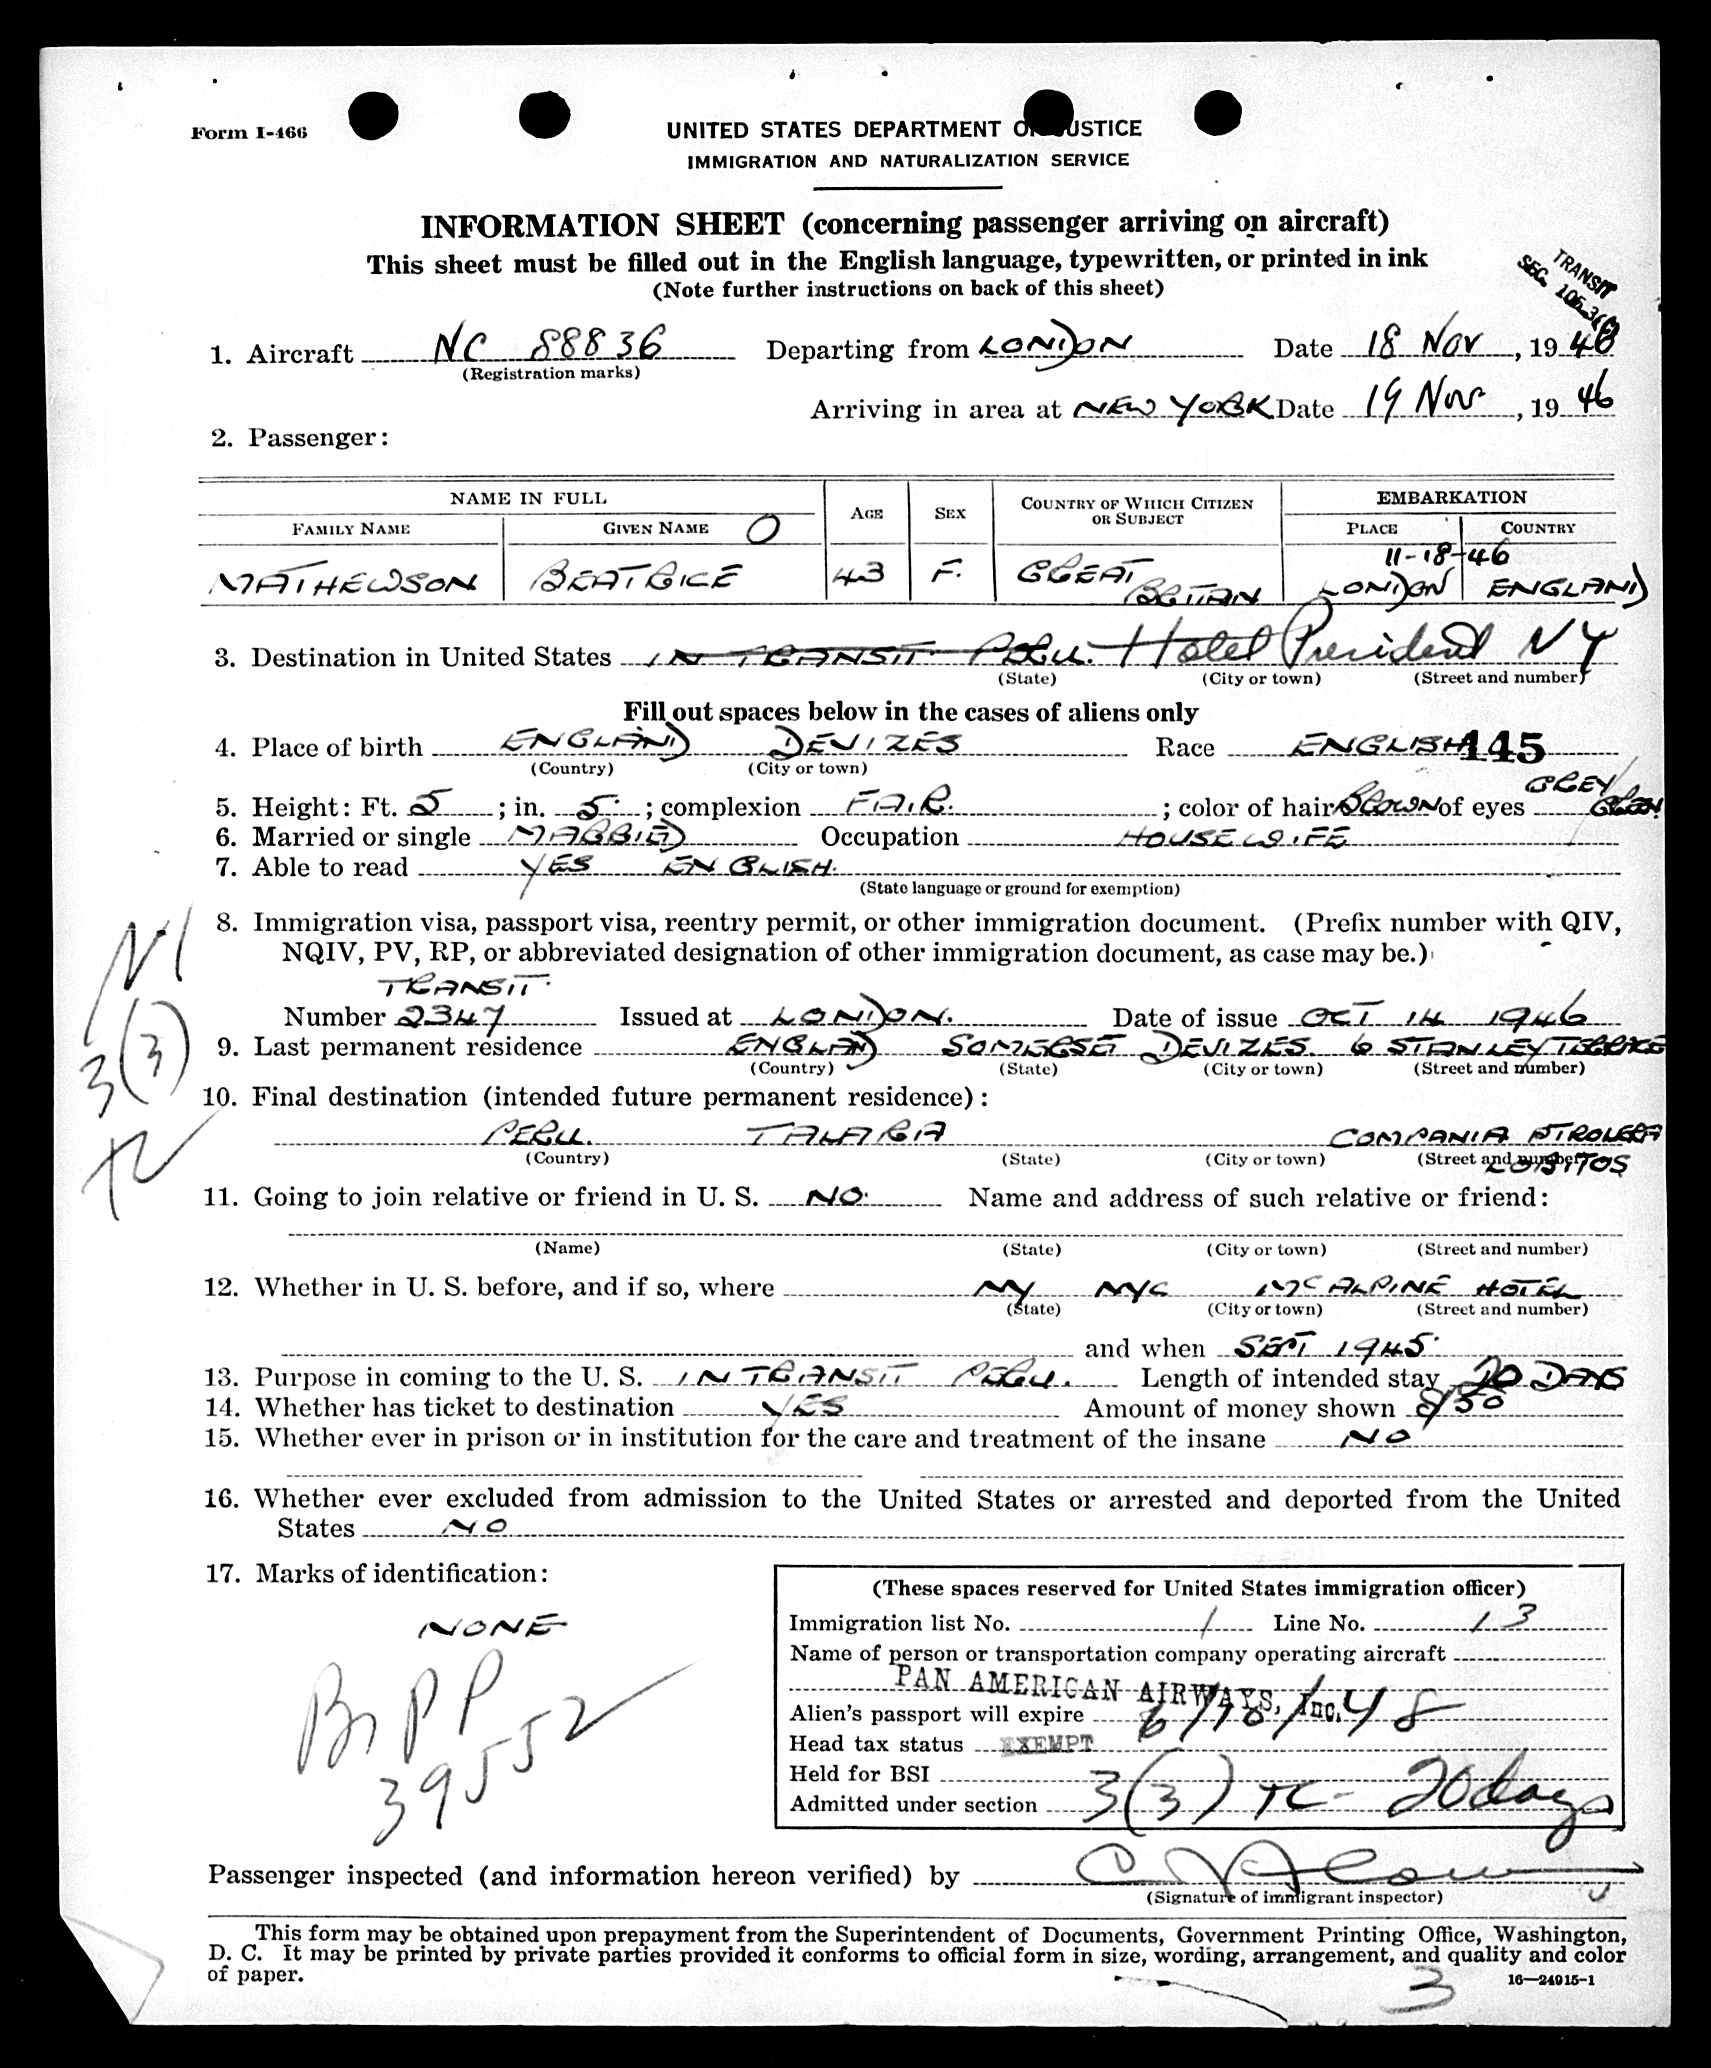 Form I-466
UNITED STATES DEPARTMENT OF JUSTICE
IMMIGRATION AND NATURALIZATION SERVICE
INFORMATION SHEET (concerning passenger arriving on aircraft)
This sheet must be filled out in the English language, typewritten, or printed in ink
(Note further instructions on back of this sheet)
TRANSIT
SEC. 105.3(
1. Aircraft NC 88836 Departing from LONDON Date 18 Nov, 1946
(Registration marks)
Arriving in area at NEW YORK Date 19 Nov, 1946
2. Passenger:
NAME IN FULL AGE SEX COUNTRY OF WHICH CITIZEN OR SUBJECT EMBARKATION
FAMILY NAME GIVEN NAME O PLACE COUNTRY
11-18-46
MATHEWSON BEATRICE 43 F. GREAT BRITIAN LONDON ENGLAND
3. Destination in United States IN TRANSIT PERU. Hotel President NY
(State) (City or town) (Street and number)
Fill out spaces below in the cases of aliens only
4. Place of birth ENGLAND DEVIZES Race ENGLISH 145
(Country) (City or town)
5. Height: Ft. 5 ; in. 5 ; complexion FAIR. ; color of hair BROWN of eyes GREY/GREEN
6. Married or single MARRIED Occupation HOUSEWIFE
7. Able to read YES ENGLISH.
(State language or ground for exemption)
8. Immigration visa, passport visa, reentry permit, or other immigration document. (Prefix number with QIV,
NQIV, PV, RP, or abbreviated designation of other immigration document, as case may be.)
TRANSIT
Number 2347 Issued at LONDON. Date of issue OCT 14 1946
9. Last permanent residence ENGLAND SOMERSET DEVIZES. 6 STANLEY TERRACE
(Country) (State) (City or town) (Street and number)
3(3)
10. Final destination (intended future permanent residence):
PERU. TALARIA COMPANIA PTROLERA
(Country) (State) (City or town) (Street and number)
LOBITOS
11. Going to join relative or friend in U. S. NO. Name and address of such relative or friend:
(Name) (State) (City or town) (Street and number)
12. Whether in U. S. before, and if so, where NY NYC McALPINE HOTEL
(State) (City or town) (Street and number)
and when SEPT 1945
13. Purpose in coming to the U. S. IN TRANSIT PERU. Length of intended stay 20 DAYS
14. Whether has ticket to destination YES Amount of money shown $/50
15. Whether ever in prison or in institution for the care and treatment of the insane NO
16. Whether ever excluded from admission to the United States or arrested and deported from the United
States NO
17. Marks of identification:
NONE
Br PP
39552
(These spaces reserved for United States immigration officer)
Immigration list No. 1 Line No. 13
Name of person or transportation company operating aircraft
PAN AMERICAN AIRWAYS, Inc.
Alien's passport will expire 6/18/48
Head tax status EXEMPT
Held for BSI
Admitted under section 3(3) TC - 20 days
Passenger inspected (and information hereon verified) by
(Signature of immigrant inspector)
This form may be obtained upon prepayment from the Superintendent of Documents, Government Printing Office, Washington,
D. C. It may be printed by private parties provided it conforms to official form in size, wording, arrangement, and quality and color
of paper.
16—24915-1
3